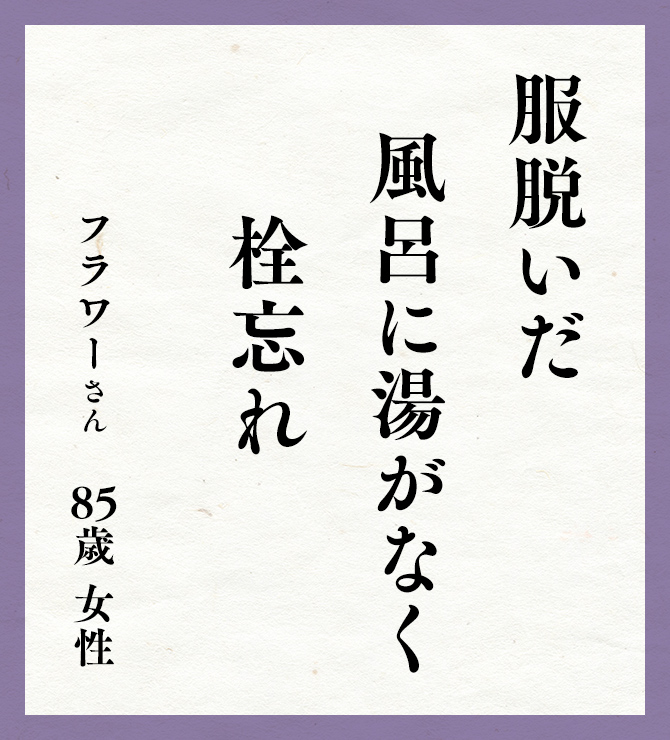 服脱いだ
風呂に湯がなく
栓忘れ
フラワーさん 85歳 女性